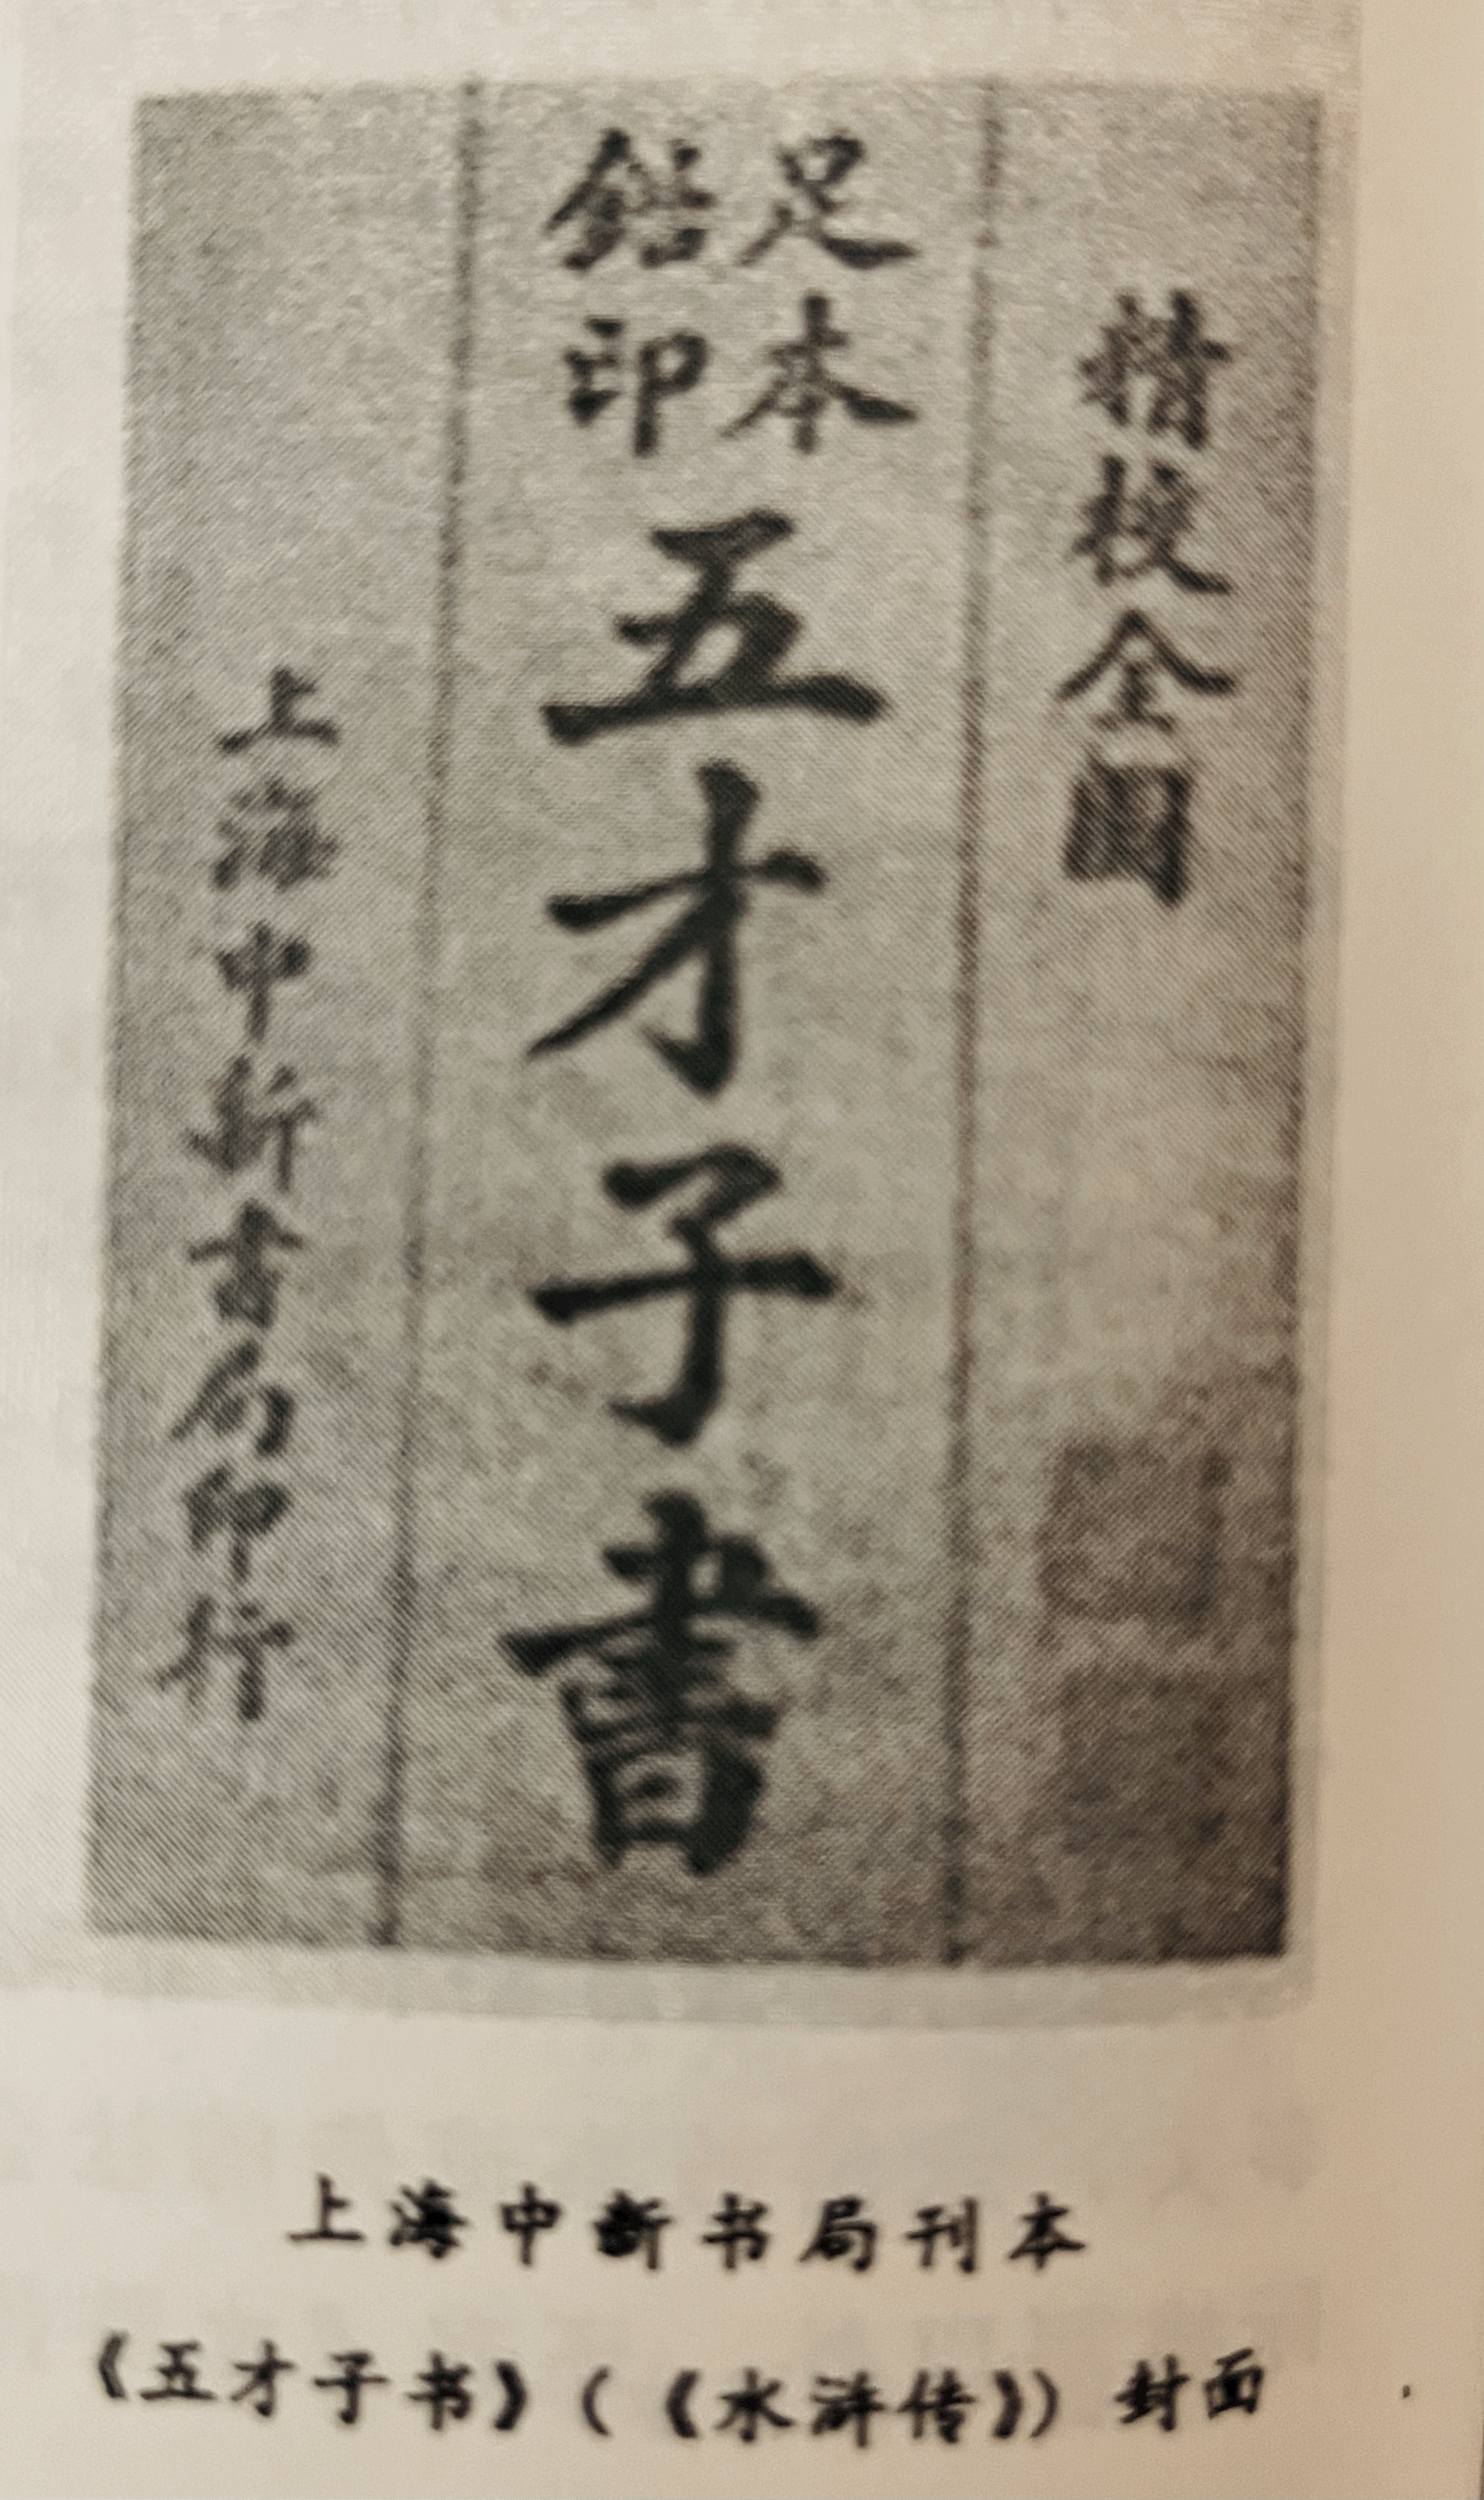 精校全圖
足本
鉛印
五才子書
上海中新書局印行
上海中新书局刊本
《五才子书》(《水浒传》)封面